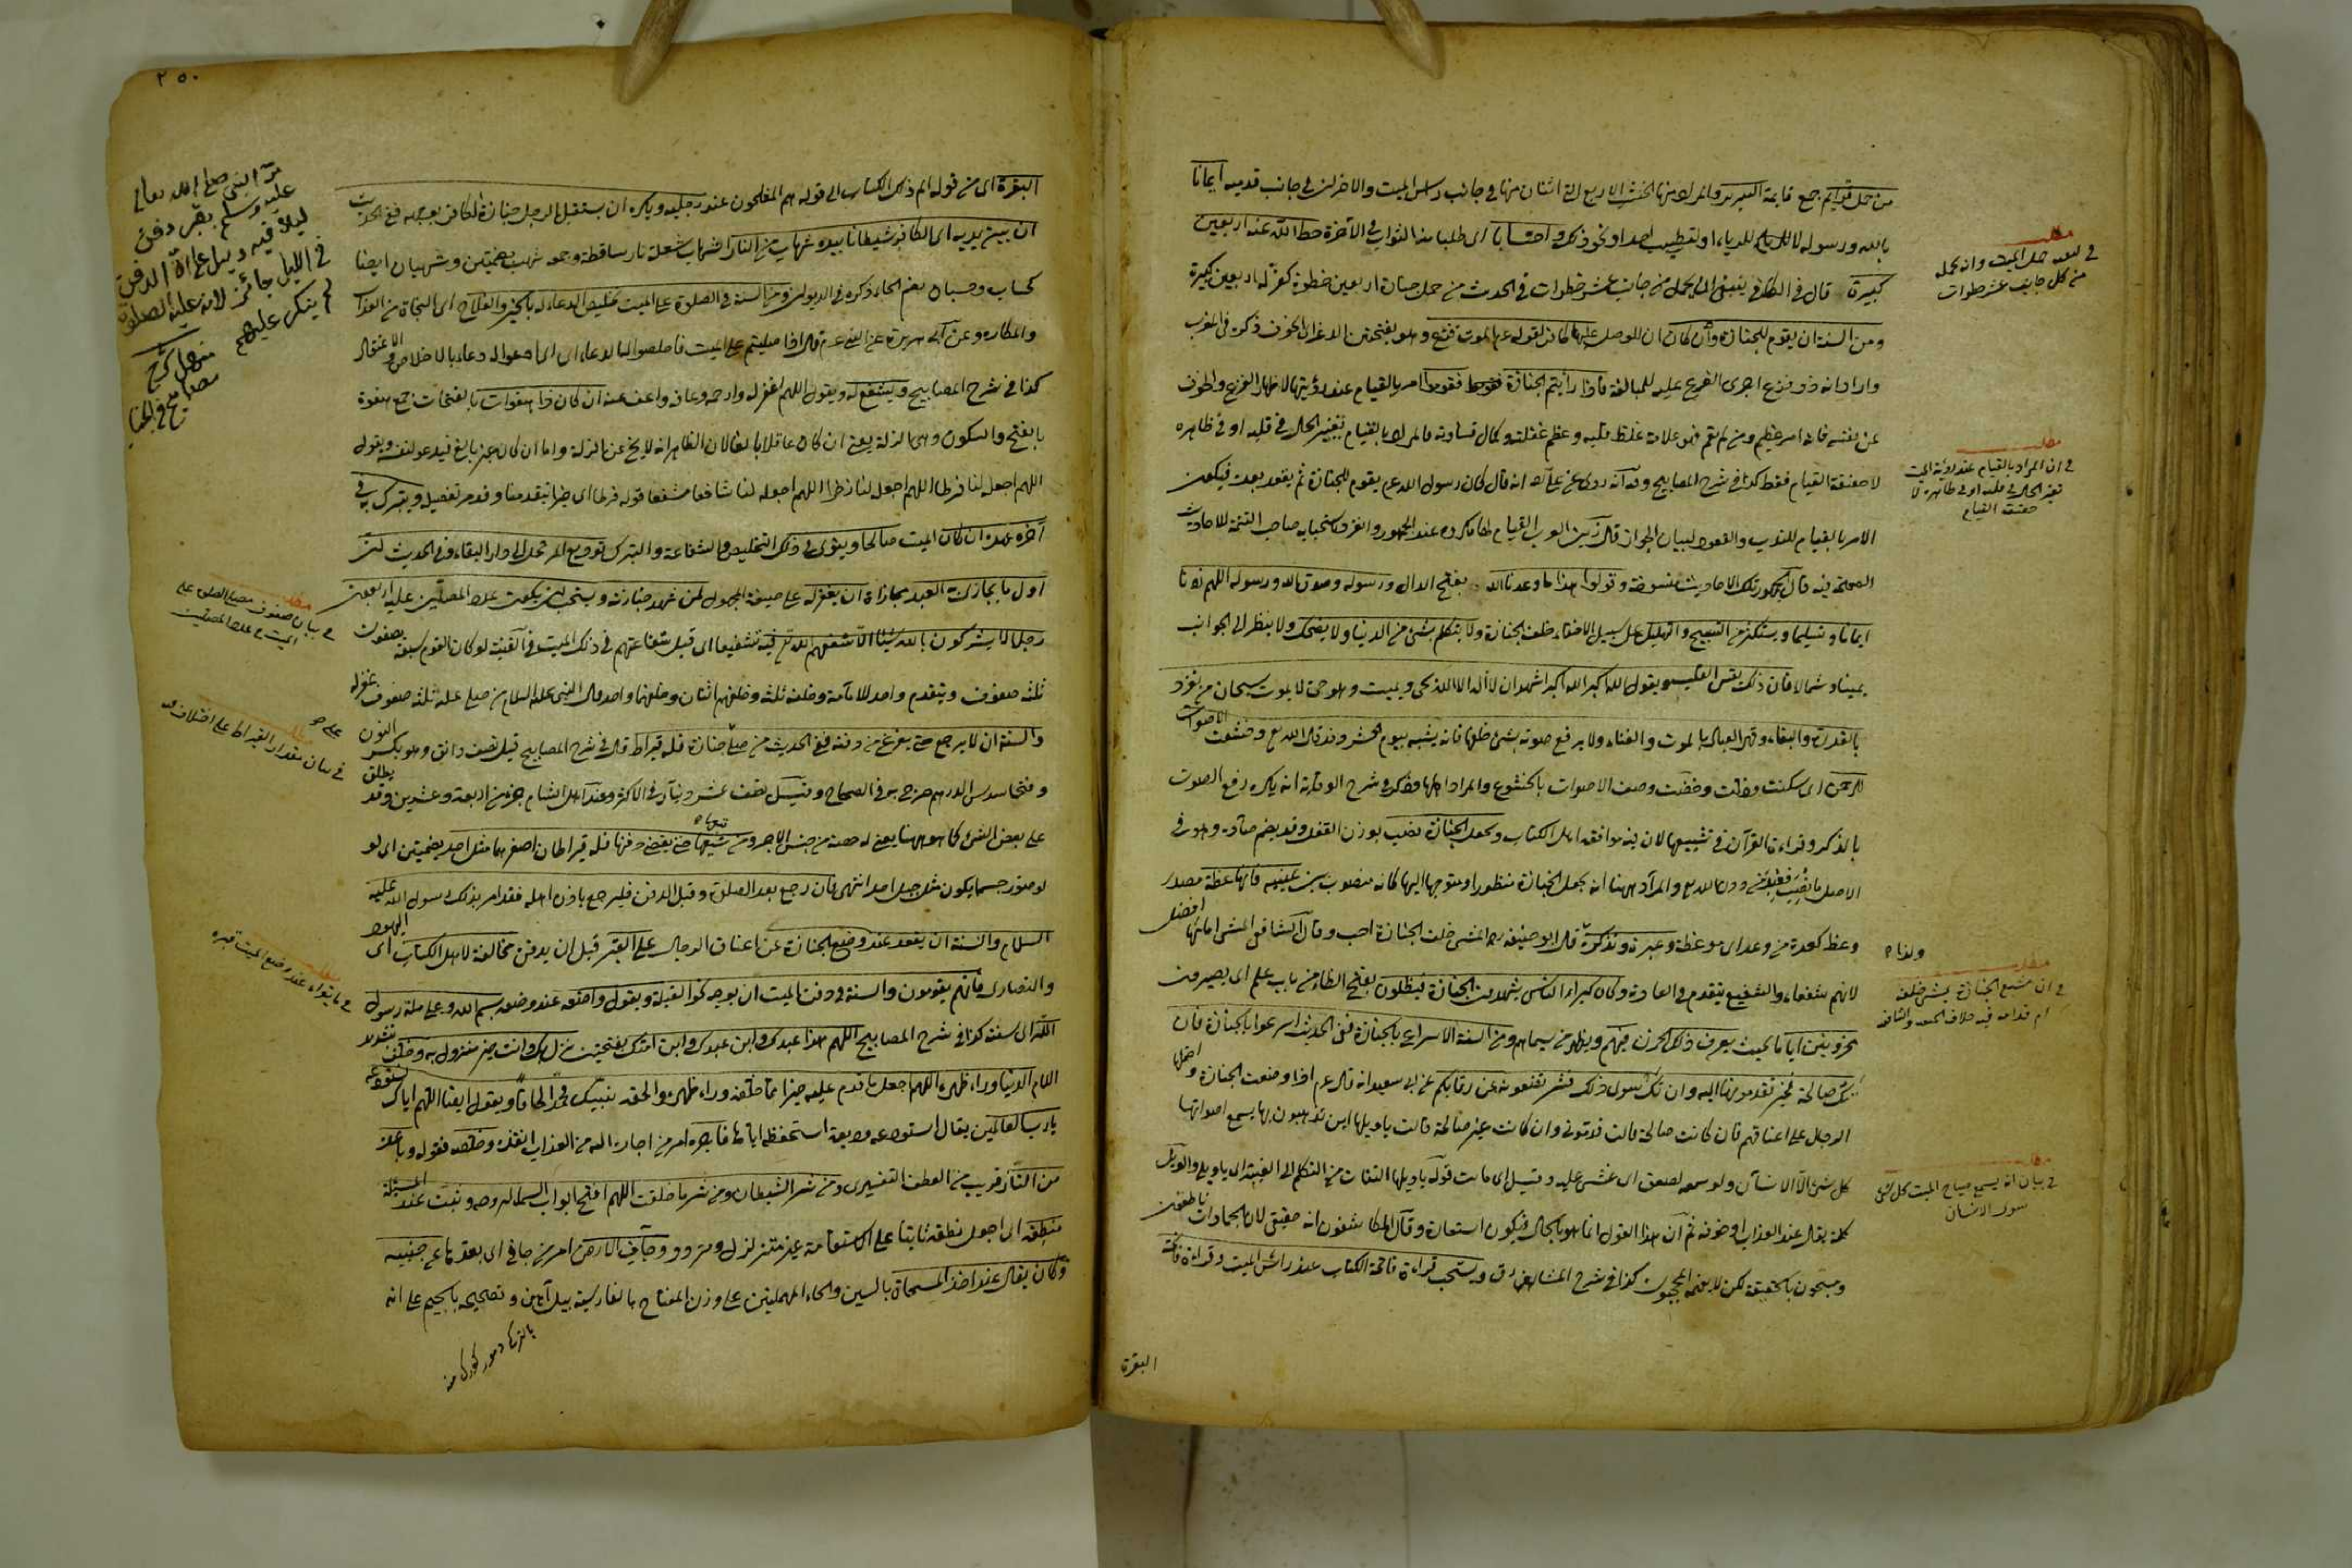 من حمل قوايم جمع قايمة السرير والمراد منها الخشب الاربع التى اثنان منها فى جانب راس الميت والاخر ان فى جانب قدميه ايمانا
بالله ورسوله لا للرياء او لتطييب احد او نحو ذلك واحتسابا اى طلبا منا الثواب فى الآخرة حط الله عنه اربعين
كبيرة قال فى الكافى ينبغى ان يحمل من جانب عشر خطوات فى الحديث من حمل جنازة اربعين خطوة كفر له اربعين كبيرة
ومن السنة ان يقوم للجنازة وان كان لقوله عم الموت فزع وهو بفتحتين الذعر اى الخوف ذكره فى المغرب
واراد انه ذو فزع اجرى الفزع عليه للمبالغة فاذا رأيتم الجنازة فقوموا امر بالقيام عند رؤيتها لاظهار الفزع والخوف
عن نفسه فانه امر عظيم ومن لم يقم فهو علامة غلظ قلبه وعظم غفلته وكمال قساوته فالمراد بالقيام تغيير الحال فى قلبه او فى ظاهره
لا حقيقة القيام فقط كذا فى شرح المصابيح وقد روى عن على انه قال كان رسول الله عم يقوم للجنازة ثم يقعد بعده فيكون
الامر بالقيام للندب والقعود لبيان الجواز قال زين العرب القيام لها مكروه عند الجمهور صاحب التتمة للاحاديث
الصحيحة فيه قال الجمهور تلك الاحاديث منسوخة وقولوا هذا ما وعدنا الله بفتح الدال ورسوله وصدق الله ورسوله اللهم زدنا
ايمانا وتسليما ويستكثر من التسبيح والتهليل على سبيل الاخفاء خلف الجنازة ولا يتكلم بشئ من الدنيا ولا يضحك ولا ينظر الى الجوانب
يمينا وشمالا فان ذلك يقسى القلب ويقول الله اكبر الله اكبر اشهد ان لا اله الا الله يحى ويميت وهو حى لا يموت سبحان من تفرد
بالقدرة والبقاء وقهر العباد بالموت والفناء ولا يرفع صوته بشئ خلفها فانه يشبه بيوم الحشر وقد قال الله تع وخشعت الاصوات
للرحمن اى سكنت وذلت وخضت وصف الاصوات بالخشوع والمراد اهلها وذكر فى شرح الوقاية انه يكره رفع الصوت
بالذكر وقراءة القرآن فى تشييعها لان فيه موافقة اهل الكتاب وتجعل الجنازة نصب بوزن القفل وقد يضم صاده وهو فى
الاصل ما نصب فعبد من دون الله تع والمراد ههنا ان يجعل الجنازة منظورا ومتوجها اليها كانه منصوب بين عينيه فانها عظة مصدر
وعظ كعدة من وعد اى موعظة وعبرة وتذكرة قال ابو حنيفة ره المشى خلف الجنازة احب وقال الشافعى المشى امامها افضل
لانهم شفعاء والشفيع يتقدم فى العادة وكان كبراء الناس يشهدون الجنازة فيظلون بفتح الظاء من باب علم اى يصيرون
محزونين اياما بحيث يعرف ذلك الحزن فيهم ويظهر من سيماهم ومن السنة الاسراع بالجنازة ففى الحديث اسرعوا بالجنازة فان
تك صالحة فخير تقدمونها اليه وان تك سوى ذلك فشر تضعونه عن رقابكم عن ابى سعيد انه قال عم اذا وضعت الجنازة واحتملها
الرجال على اعناقهم فان كانت صالحة قالت قدمونى وان كانت غير صالحة قالت يا ويلها اين تذهبون بها يسمع صوتها
كل شئ الا الانسان ولو سمعه لصعق اى غشى عليه وقيل اى مات قوله يا ويلها التفات من التكلم الى الغيبة اى يا ويلى والويل
كلمة يقال عند العذاب او خوفه ثم ان هذا القول انما هو بالحال فيكون استعارة وقال المكاشفون انه حقيقى لان الجمادات ناطقون
ومسبحون بالحقيقة لكن لا يفهمه المحجوبون كذا فى شرح المشارق ويستحب قراءة فاتحة الكتاب عند راس الميت وقراءة فاتحة
البقرة
مطلب
فى حمل الميت وانه يحمله
من كل جانب عشر خطوات
مطلب
فى ان المراد بالقيام عند رؤية الميت
تغيير الحال فى قلبه او فى ظاهره لا
حقيقة القيام
ولنا
مطلب
فى ان مشيع الجنازة يمشى خلفه
ام قدامه فيه خلاف الحنفية والشافعية
مطلب
فى بيان انه يسمع صياح الميت كل شئ
سوى الانسان
٢٥٠
البقرة اى من قوله الم ذلك الكتاب الى قوله هم المفلحون عند رجليه ويكره ان يستقبل الرجل جنازة الكافر بوجهه ففى الحديث
ان بين يديه اى الكافر شيطانا بيده شهاب من النار الشهاب شعلة نار ساقطة وجمعه شهب بضمتين وشهبان ايضا
كحساب وحسبان بضم الحاء ذكره فى الديوان ومن السنة فى الصلوة على الميت تخليص الدعاء له بالخير والفلاح اى النجاة من العذاب
والمكاره وعن ابى هريرة عن النبى عم قال اذا صليتم على الميت فاخلصوا له الدعاء اى ادعوا له دعاء بالاخلاص والاعتقاد
كذا فى شرح المصابيح ويستغفر له ويقول اللهم اغفر له وارحمه وعافه واعف عنه ان كان ذا هفوات بالفتحات جمع هفوة
بالفتح والسكون وهى الزلة يعنى ان كان عاقلا بالغا لان الظاهر انه لا يخ عن الزلة واما ان كان غير بالغ فيدعو لنفسه ويقول
اللهم اجعله لنا فرطا اللهم اجعله لنا ذخرا اللهم اجعله لنا شافعا مشفعا قوله فرطا اى خيرا يتقدمنا وقد مر تفصيله ويتبرك به فى
آخره عهده ان كان الميت صالحا وينوى فى ذلك التخليص والشفاعة والتبرك توديع المرتحل الى دار البقاء وفى الحديث ان
اول ما يجازى به العبد مجازاة ان يغفر له على صيغة المجهول لمن شهد جنازته ويستحب ان يكون عدد المصلين عليه اربعون
رجلا لا يشركون بالله شيئا الا شفعهم الله تع فيه تشفيعا اى قبل شفاعتهم فى ذلك الميت وفى القنية لو كان القوم سبعة يصفون
ثلثة صفوف ويتقدم واحد للامامة وخلفه ثلثة وخلفهم اثنان وخلفهما واحد قال النبى عليه السلام من صلى عليه ثلثة صفوف غفر له
والسنة ان لا يرجع حتى يفرغ من دفنه ففى الحديث من صلى على جنازة فله قيراط قال فى شرح المصابيح قيل نصف دانق وهو بكسر النون
وفتحها سدس الدرهم صرح به فى الصحاح وقيل نصف عشر دينار فى الاكثر وعند اهل الشام جزء من اربعة وعشرين وقد يطلق
على بعض الشئ كما هو ههنا يعنى له حصة من جنس الاجر ومن شيعها حتى يقضى دفنها فله قيراطان اصغرهما مثل احد بضمتين اى لو
لو صور جسما يكون مثل جبل احد انتهى فان رجع بعد الصلوة وقبل الدفن فليرجع باذن اهله فقد امر بذلك رسول الله عليه
السلام والسنة ان يقعد عند وضع الجنازة عن اعناق الرجال على القبر قبل ان يدفن مخالفة لاهل الكتاب اى اليهود
والنصارى فانهم يقومون والسنة فى دفن الميت ان يوجه نحو القبلة ويقول واضعه عند وضعه بسم الله وعلى ملة رسول
الله اى سنته كذا فى شرح المصابيح اللهم هذا عبدك وابن عبدك وابن امتك بفتحتين نزل بك وانت خير منزول به وخلف
اللام الدنيا وراء ظهره اللهم اجعل ما قدم عليه خيرا مما خلفه وراء ظهره والحقه بنبيك الحاقا ويقول ايضا اللهم اياك نستودعه
يا رب العالمين يقال استودعه وديعة استحفظه اياها فاجره امر من اجاره الله من العذاب انقذه وخلصه فقوله وباعده
من النار قريب من العطف التفسيرى ومن شر الشيطان ومن شر ما خلقت اللهم افتح ابواب السماء لروحه وثبت عند المسئلة
منطقه اى اجعل نطقه ثابتا على الاستقامة غير متزلزل ومتردد وجاف الارض امر من جافى اى بعدها عن جنبيه
وكان يقال عند اخذ المسحاة بالسين والحاء المهملتين على وزن المفتاح بالفارسية بيل آهن وتصحيحه بالجيم على انه
مر النبى صلى الله تعالى
عليه وسلم بقبر دفن
ليلا فيه دليل على ان الدفن
فى الليل جائز لانه عليه الصلوة
لم ينكر عليهم
مطلب
فى بيان صفوف مصلى الصلوة على
الميت وعدد المصلين
على
مطلب
فى بيان مقدار القيراط على اختلاف
مطلب
فى ما يقول عند وضع الميت قبره